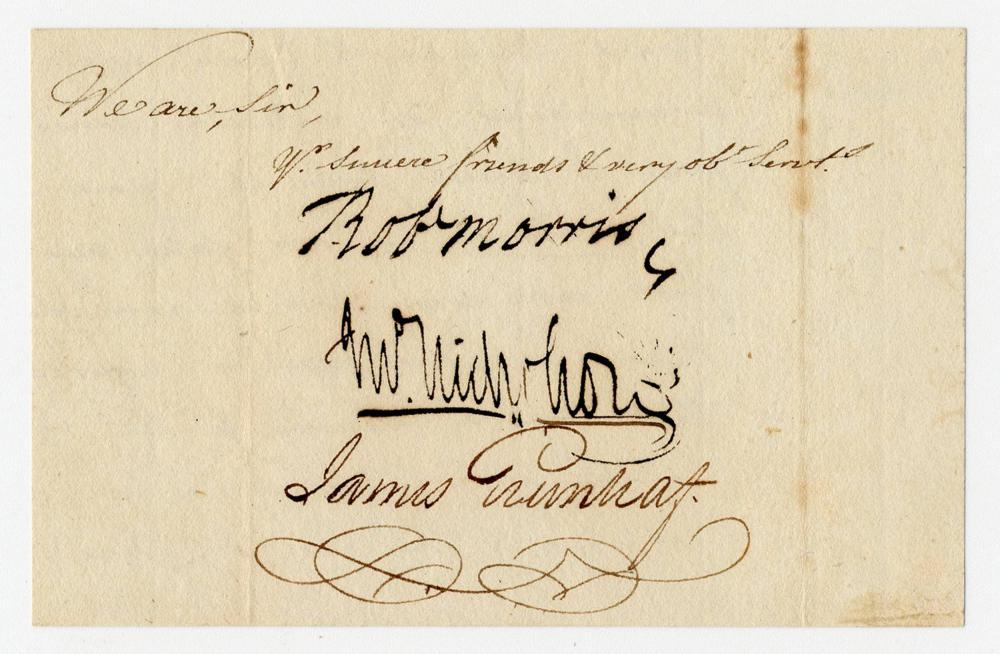 We are, Sir,
Yr. sincere friends & very obt. Servts.
Robt Morris
Jno. Nicholson
James Greenleaf.